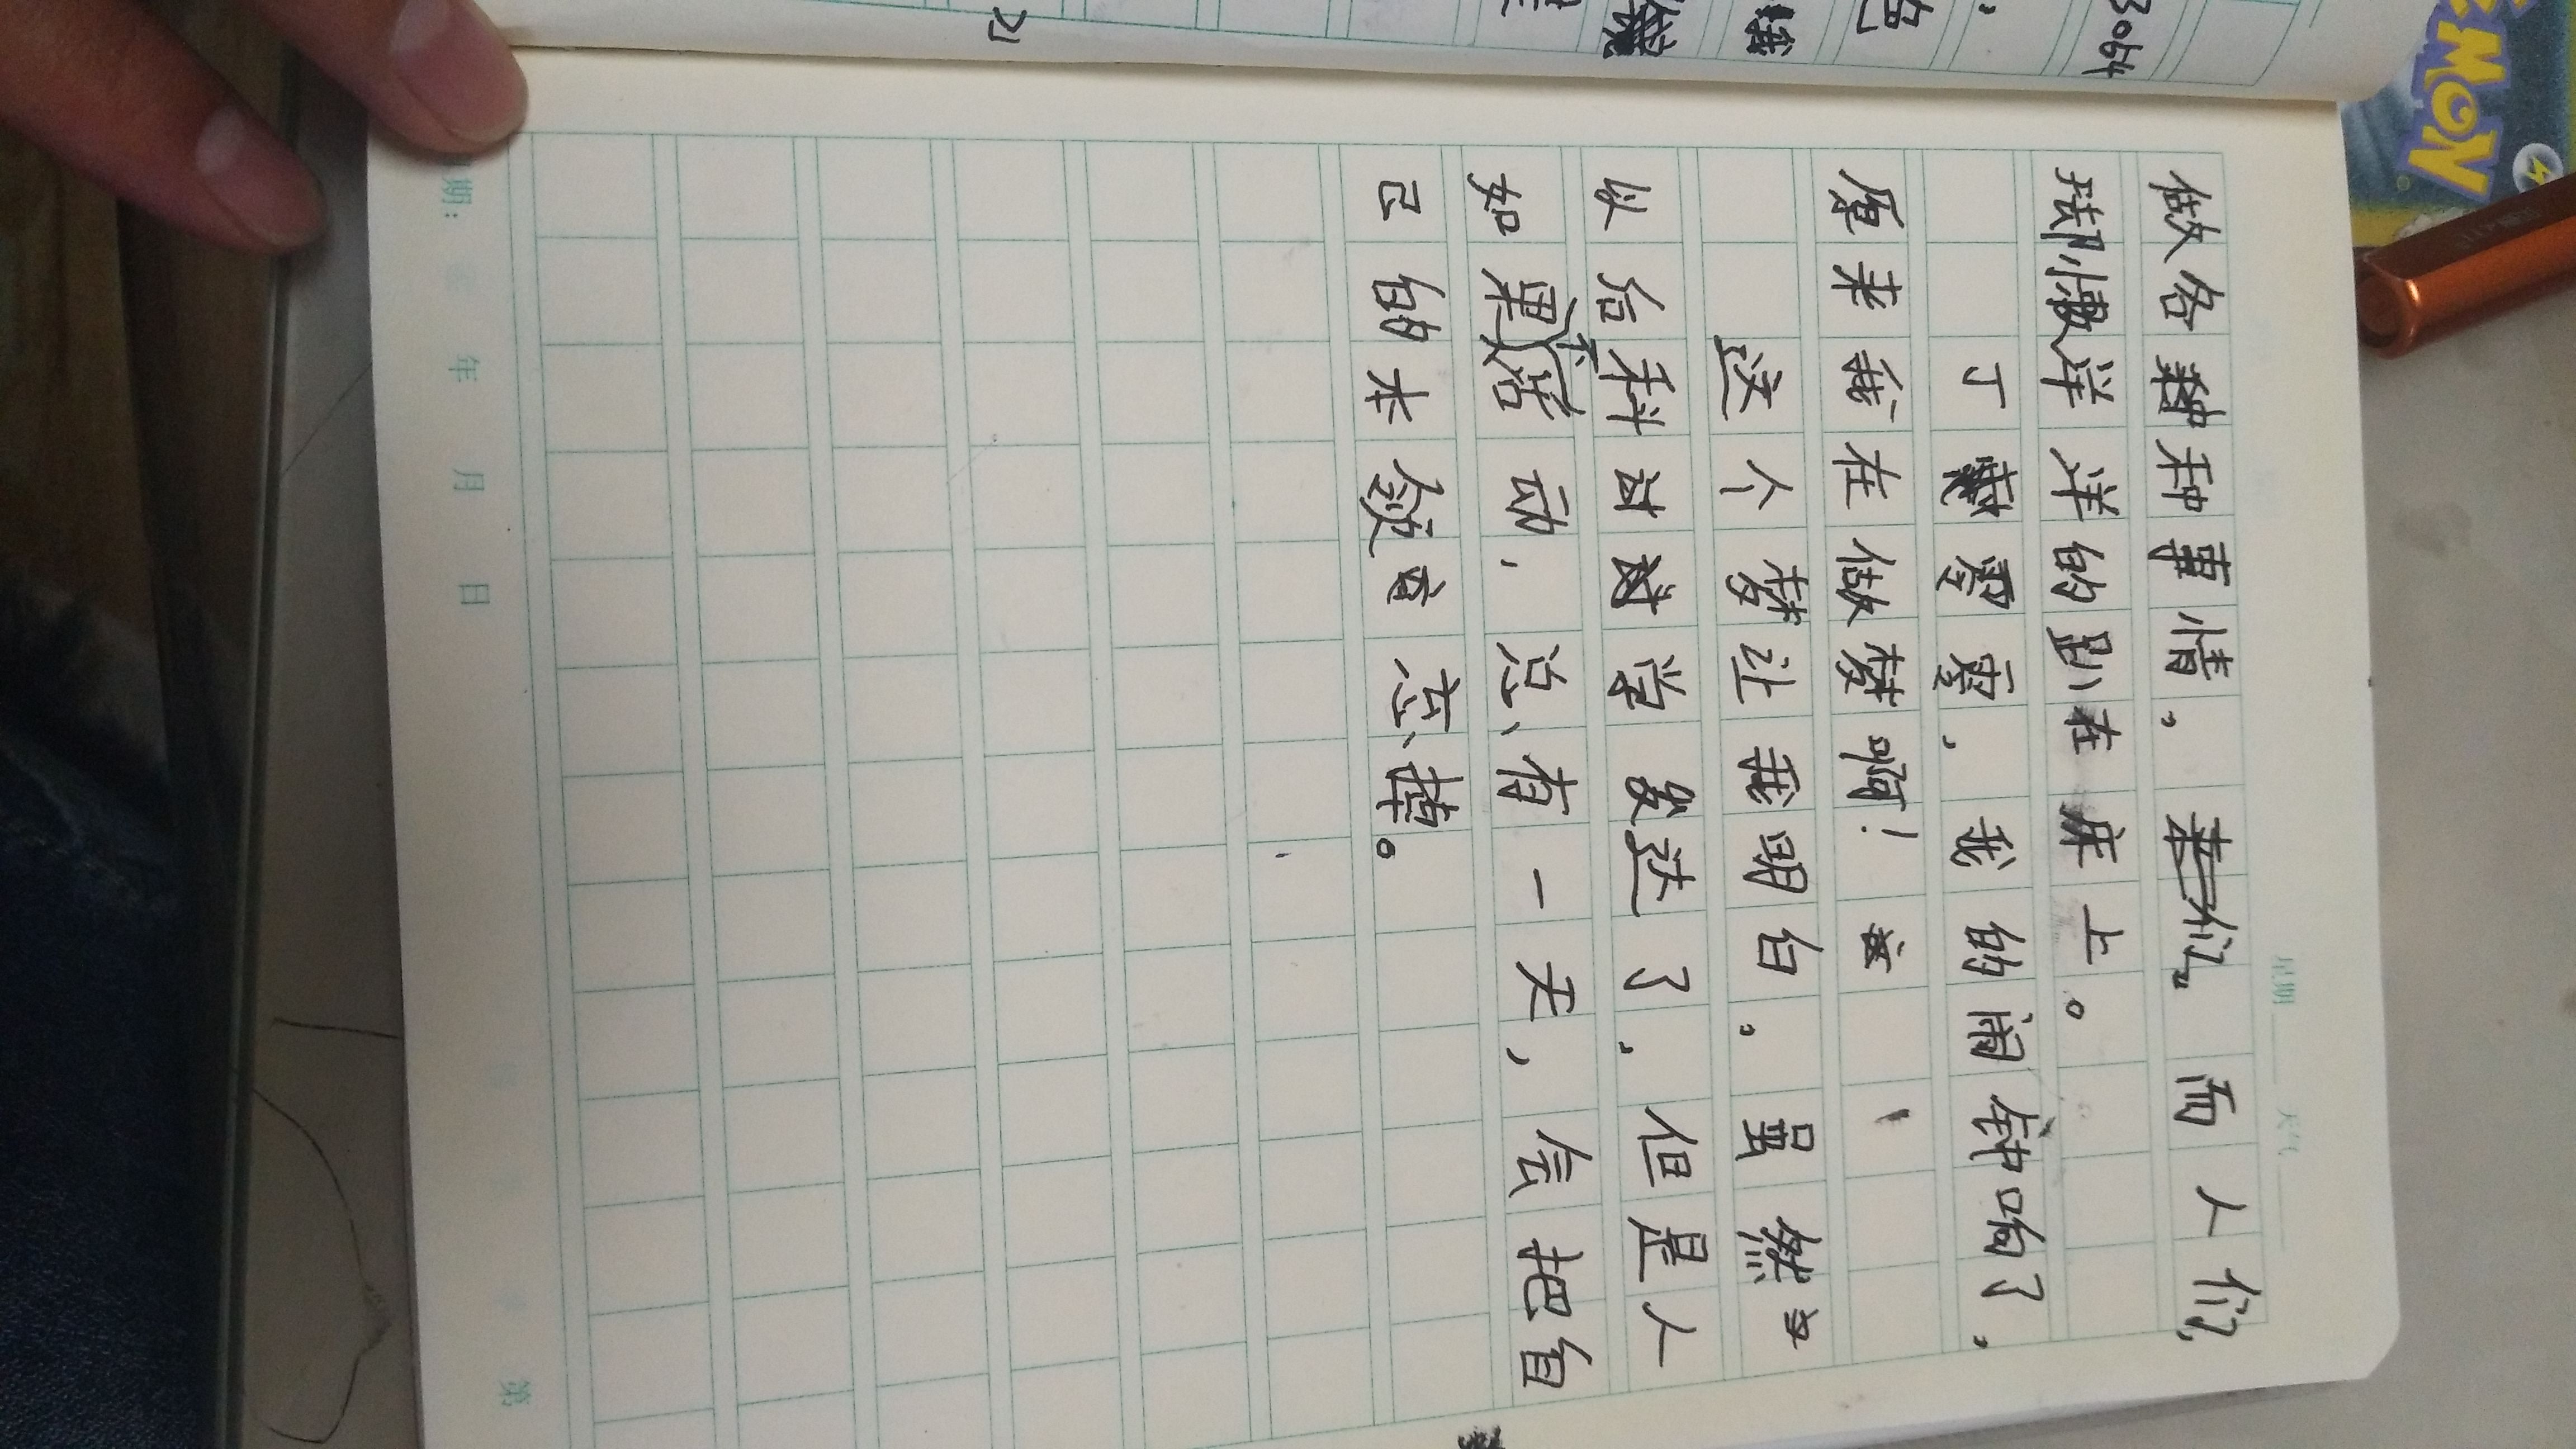 3064
做各种事情，而人们，
懒洋洋的趴在床上。
丁零零，我的闹钟响了，
原来我在做梦啊！
这个梦让我明白，虽然
似后科技发达了，但是人
如果不活动，总有一天，会把自
己的本领忘掉。
日期： 年 月 日
星期 天气
第
EMON